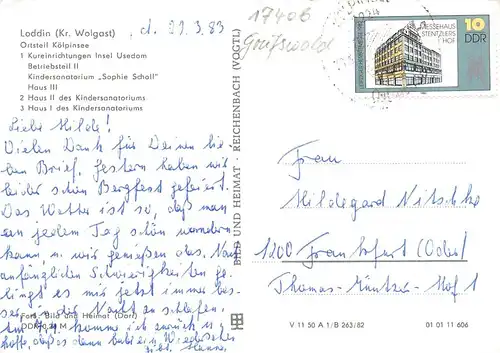 Loddin (Kr. Wolgast)
Ortsteil Kölpinsee
1 Kureinrichtungen Insel Usedom
Betriebsteil II
Kindersanatorium „Sophie Scholl"
Haus III
2 Haus II des Kindersanatoriums
3 Haus I des Kindersanatoriums
, d. 29.3.83
Liebe Hilde!
Vielen Dank für Deinen lie-
ben Brief, gestern haben wir
leider schon Bergfest gefeiert.
Das Wetter ist so, daß man
an jedem Tag schön wandern
kann u. wir genießen das. Nach
anfänglichen Schwierigkeiten ge-
lingt es mir jetzt immer bes-
ser in der Nacht zu schlafen.
komme ich zurück u.
hoffe, daß es dann bald ein Wiedersehen
Foto: Bild und Heimat (Darr)
BILD UND HEIMAT · REICHENBACH (VOGTL)
17406
Greifswald
MESSEHAUS
STENTZLERS
HOF
10
DDR
Frau
Hildegard Nitschke
1200 Frankfurt (Oder)
Thomas-Müntzer-Hof 1
V 11 50 A 1/B 263/82
01 01 11 606